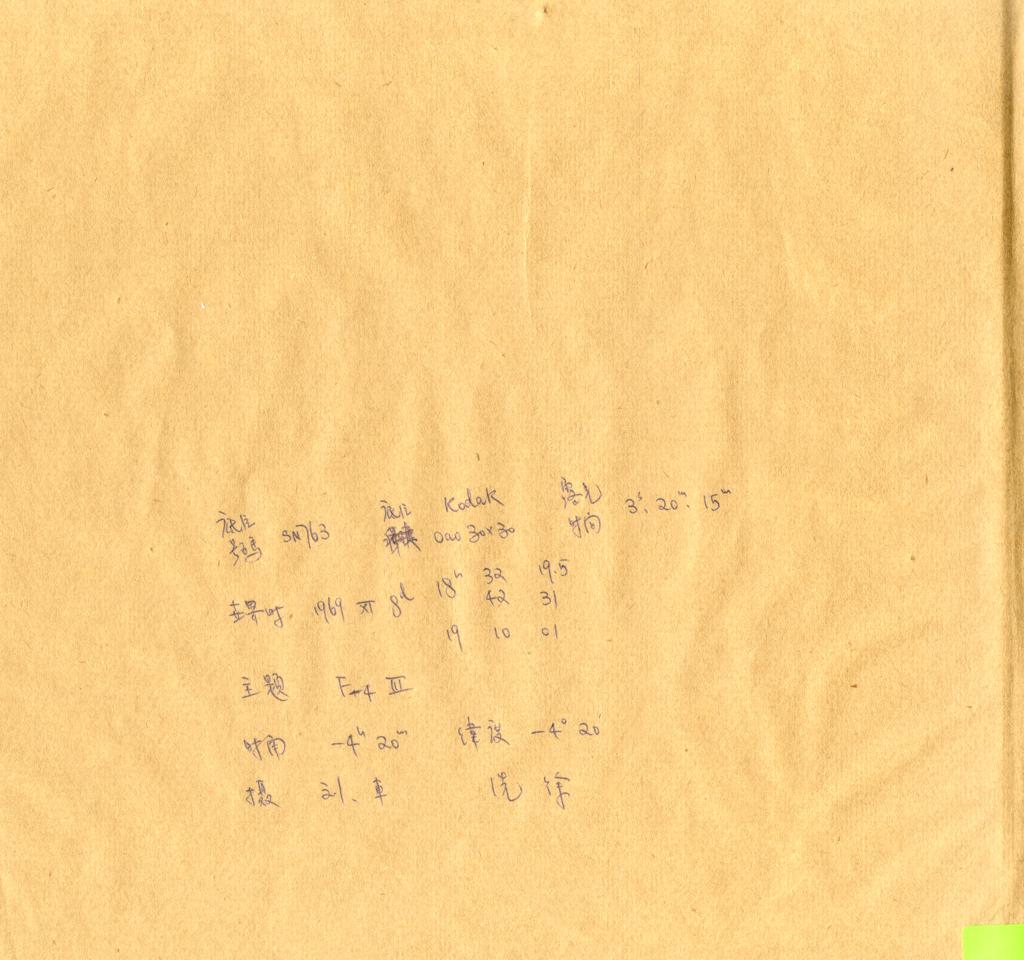 底片 底片 Kodak 露光
号码 SN763 Oao 30×30 时间 3s. 20m. 15m
世界时. 1969 XI 8d 18h 32 19.5
42 31
19 10 01
主题 F-4 III
时角 -4h 20m 纬度 -4° 20'
摄 刘、車 洗 徐